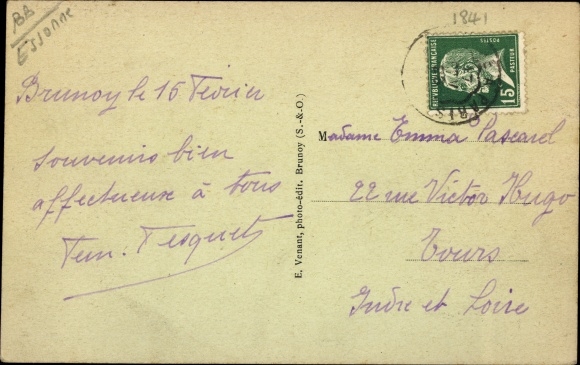 BA
Essonne
1841
Brunoy le 15 Février
Souvenirs bien
affectueux à tous
E. Venant, photo-édit. Brunoy (S.-&-O.)
REPUBLIQUE FRANÇAISE
POSTES
PASTEUR
15
Madame Emma Pascard
22 rue Victor Hugo
Tours
Indre et Loire